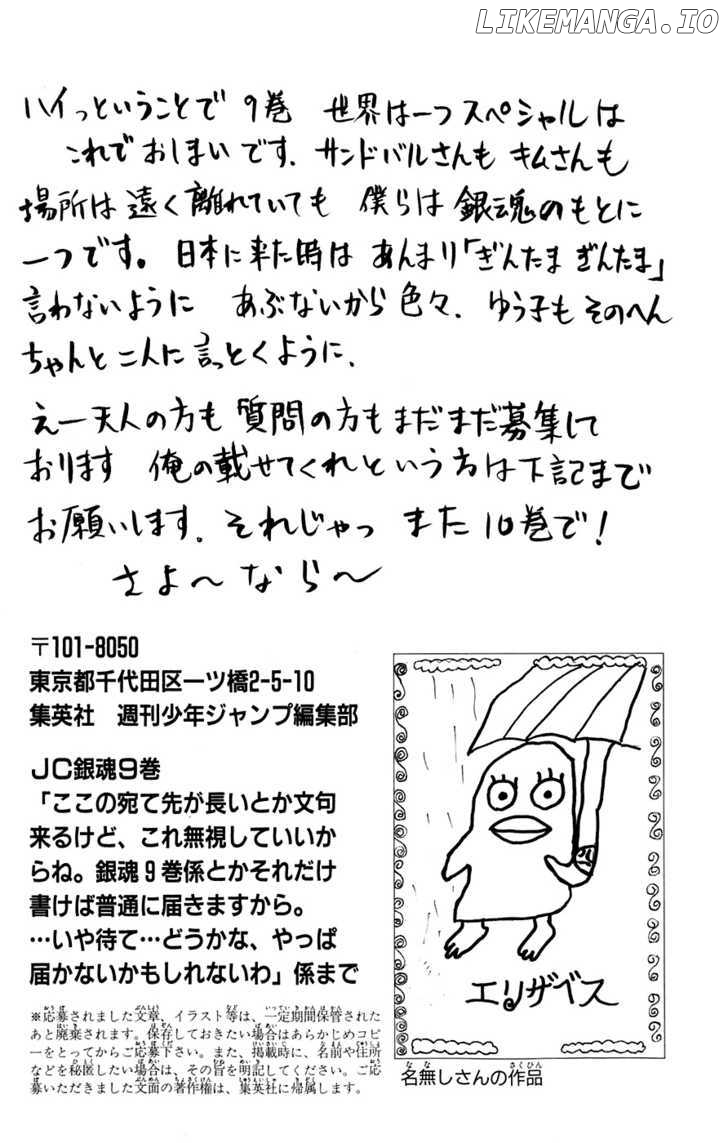 LIKEMANGA.IO
ハイっということで 9巻 世界は一つスペシャルは
これでおしまいです. サンドバルさんも キムさんも
場所は遠く離れていても 僕らは銀魂のもとに
一つです。日本に来た時は あんまり「ぎんたま ぎんたま」
言わないように あぶないから色々. ゆう子もそのへん
ちゃんと二人に言っとくように.
えー天人の方も 質問の方もまだまだ募集して
おります 俺の載せてくれという方は下記まで
お願いします. それじゃっ また10巻で!
さよ〜なら〜
〒101-8050
東京都千代田区一ツ橋2-5-10
集英社 週刊少年ジャンプ編集部
JC銀魂9巻
「ここの宛て先が長いとか文句
来るけど、これ無視していいか
らね。銀魂9巻係とかそれだけ
書けば普通に届きますから。
…いや待て…どうかな、やっぱ
届かないかもしれないわ」係まで
※応募されました文章、イラスト等は、一定期間保管された
あと廃棄されます。保存しておきたい場合はあらかじめコピ
ーをとってからご応募下さい。また、掲載時に、名前や住所
などを秘匿したい場合は、その旨を明記してください。ご応
募いただきました文面の著作権は、集英社に帰属します。
エリザベス
名無しさんの作品